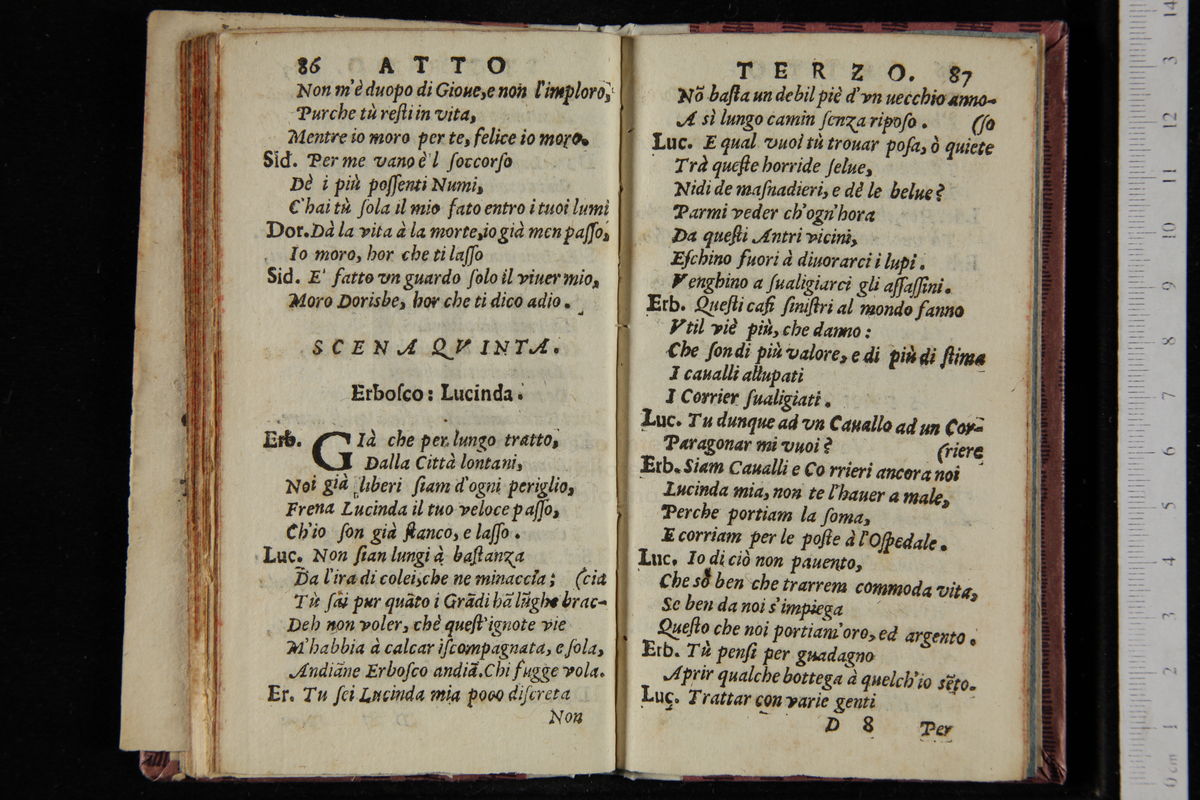 86 ATTO
Non m'è duopo di Gioue, e non l'imploro,
Purche tù resti in vita,
Mentre io moro per te, felice io moro.
Sid. Per me vano è'l soccorso
Dè i più possenti Numi,
C'hai tù sola il mio fato entro i tuoi lumi
Dor. Dà la vita à la morte, io già men passo,
Io moro, hor che ti lasso
Sid. E' fatto vn guardo solo il viuer mio,
Moro Dorisbe, hor che ti dico adio.
SCENA QVINTA.
Erbosco: Lucinda.
Erb. GIà che per lungo tratto,
Dalla Città lontani,
Noi già liberi siam d'ogni periglio,
Frena Lucinda il tuo veloce passo,
Ch'io son già stanco, e lasso.
Luc. Non sian lungi à bastanza
Da l'ira di colei, che ne minaccia; (cia
Tù sai pur quāto i Grādi hā lūghe brac-
Deh non voler, chè quest'ignote vie
M'habbia à calcar iscompagnata, e sola,
Andiāne Erbosco andiā. Chi fugge vola.
Er. Tu sei Lucinda mia poco discreta
Non
TERZO. 87
Nō basta un debil piè d'vn uecchio anno-
A sì lungo camin senza riposo. (so
Luc. E qual vuoi tù trouar posa, ò quiete
Trà queste horride selue,
Nidi de masnadieri, e dè le belue?
Parmi veder ch'ogn'hora
Da questi Antri vicini,
Eschino fuori à diuorarci i lupi.
Venghino a sualigiarci gli assassini.
Erb. Questi casi sinistri al mondo fanno
Vtil viè più, che danno:
Che son di più valore, e di più di stima
I caualli allupati
I Corrier sualigiati.
Luc. Tu dunque ad vn Cauallo ad un Cor-
Paragonar mi vuoi? (riere
Erb. Siam Caualli e Co rrieri ancora noi
Lucinda mia, non te l'hauer a male,
Perche portiam la soma,
E corriam per le poste à l'Ospedale.
Luc. Io di ciò non pauento,
Che sò ben che trarrem commoda vita,
Se ben da noi s'impiega
Questo che noi portiam'oro, ed argento.
Erb. Tù pensi per guadagno
Aprir qualche bottega à quelch'io sēto.
Luc. Trattar con varie genti
D 8 Per